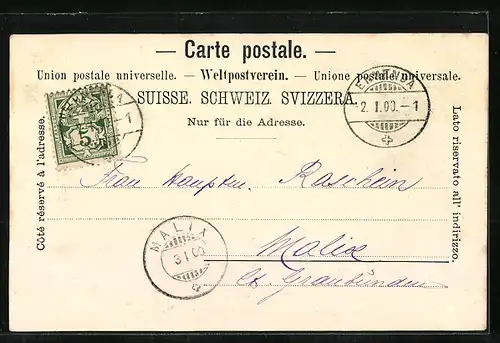 — Carte postale. —
Union postale universelle. — Weltpostverein. — Unione postale universale.
SUISSE. SCHWEIZ. SVIZZERA.
Nur für die Adresse.
Côté réservé à l'adresse.
Lato riservato all' indirizzo.
5
2. I. 00. – 1
Frau Hauptm. Raschein
Malix
Ct. Graubünden
MALIX
3 I 00